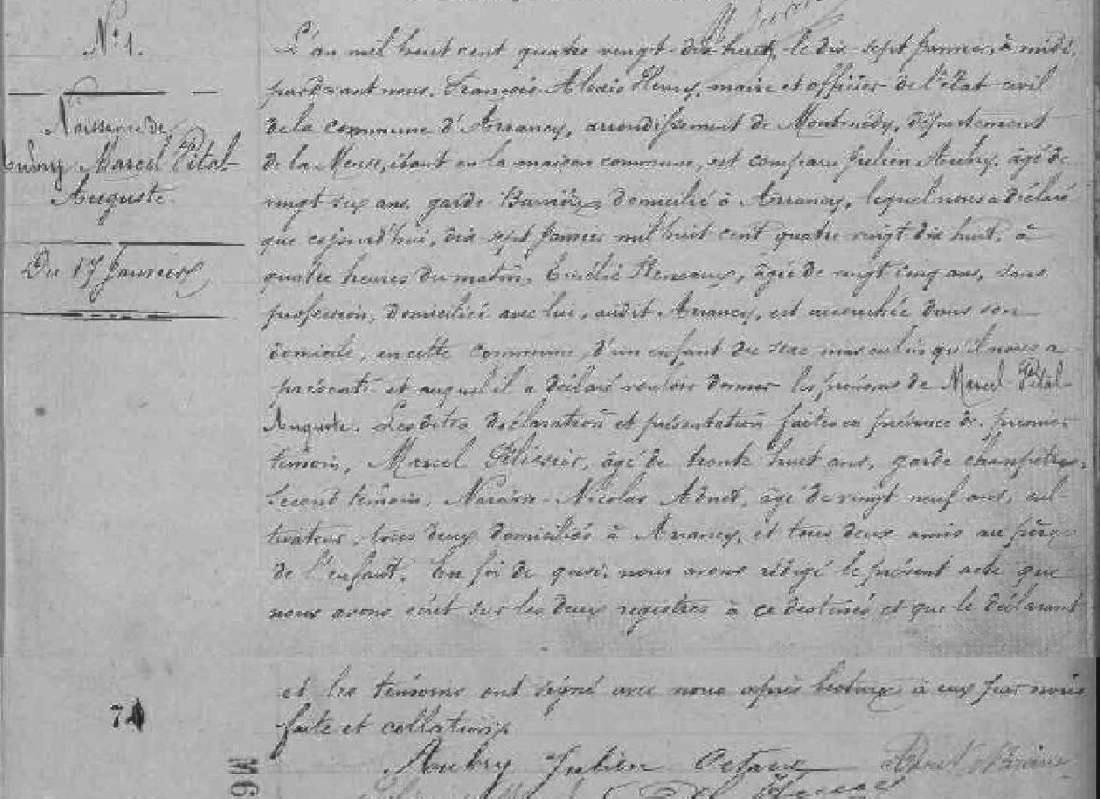 N° 1.
Naissance de
Aubry Marcel Vital
Auguste
Du 17 Janvier
L'an mil huit cent quatre vingt dix huit, le dix sept Janvier, à midi,
pardevant nous, François Alexis Henry, maire et officier de l'état civil
de la commune d'Arrancy, arrondissement de Montmédy, département
de la Meuse, étant en la maison commune, est comparu Julien Aubry, âgé de
vingt six ans, garde Barrière domicilié à Arrancy, lequel nous a déclaré
que cejourd'hui, dix sept Janvier mil huit cent quatre vingt dix huit, à
quatre heures du matin, âgée de vingt cinq ans, sans
profession, domiciliée avec lui, audit Arrancy, est accouchée dans son
domicile, en cette commune, d'un enfant du sexe masculin qu'il nous a
présenté et auquel il a déclaré vouloir donner les prénoms de Marcel Vital
Auguste. Les dites déclaration et présentation faites en présence de, premier
témoin, Marcel âgé de trente huit ans, garde champêtre,
second témoin, Nicolas Adnet, âgé de vingt neuf ans, cul-
tivateur, tous deux domiciliés à Arrancy, et tous deux amis au père
de l'enfant. En foi de quoi, nous avons rédigé le présent acte que
nous avons écrit sur les deux registres à ce destinés et que le déclarant
et les témoins ont signé avec nous après lecture à eux par nous
faite et collation
74
M6
Aubry Julien Octave